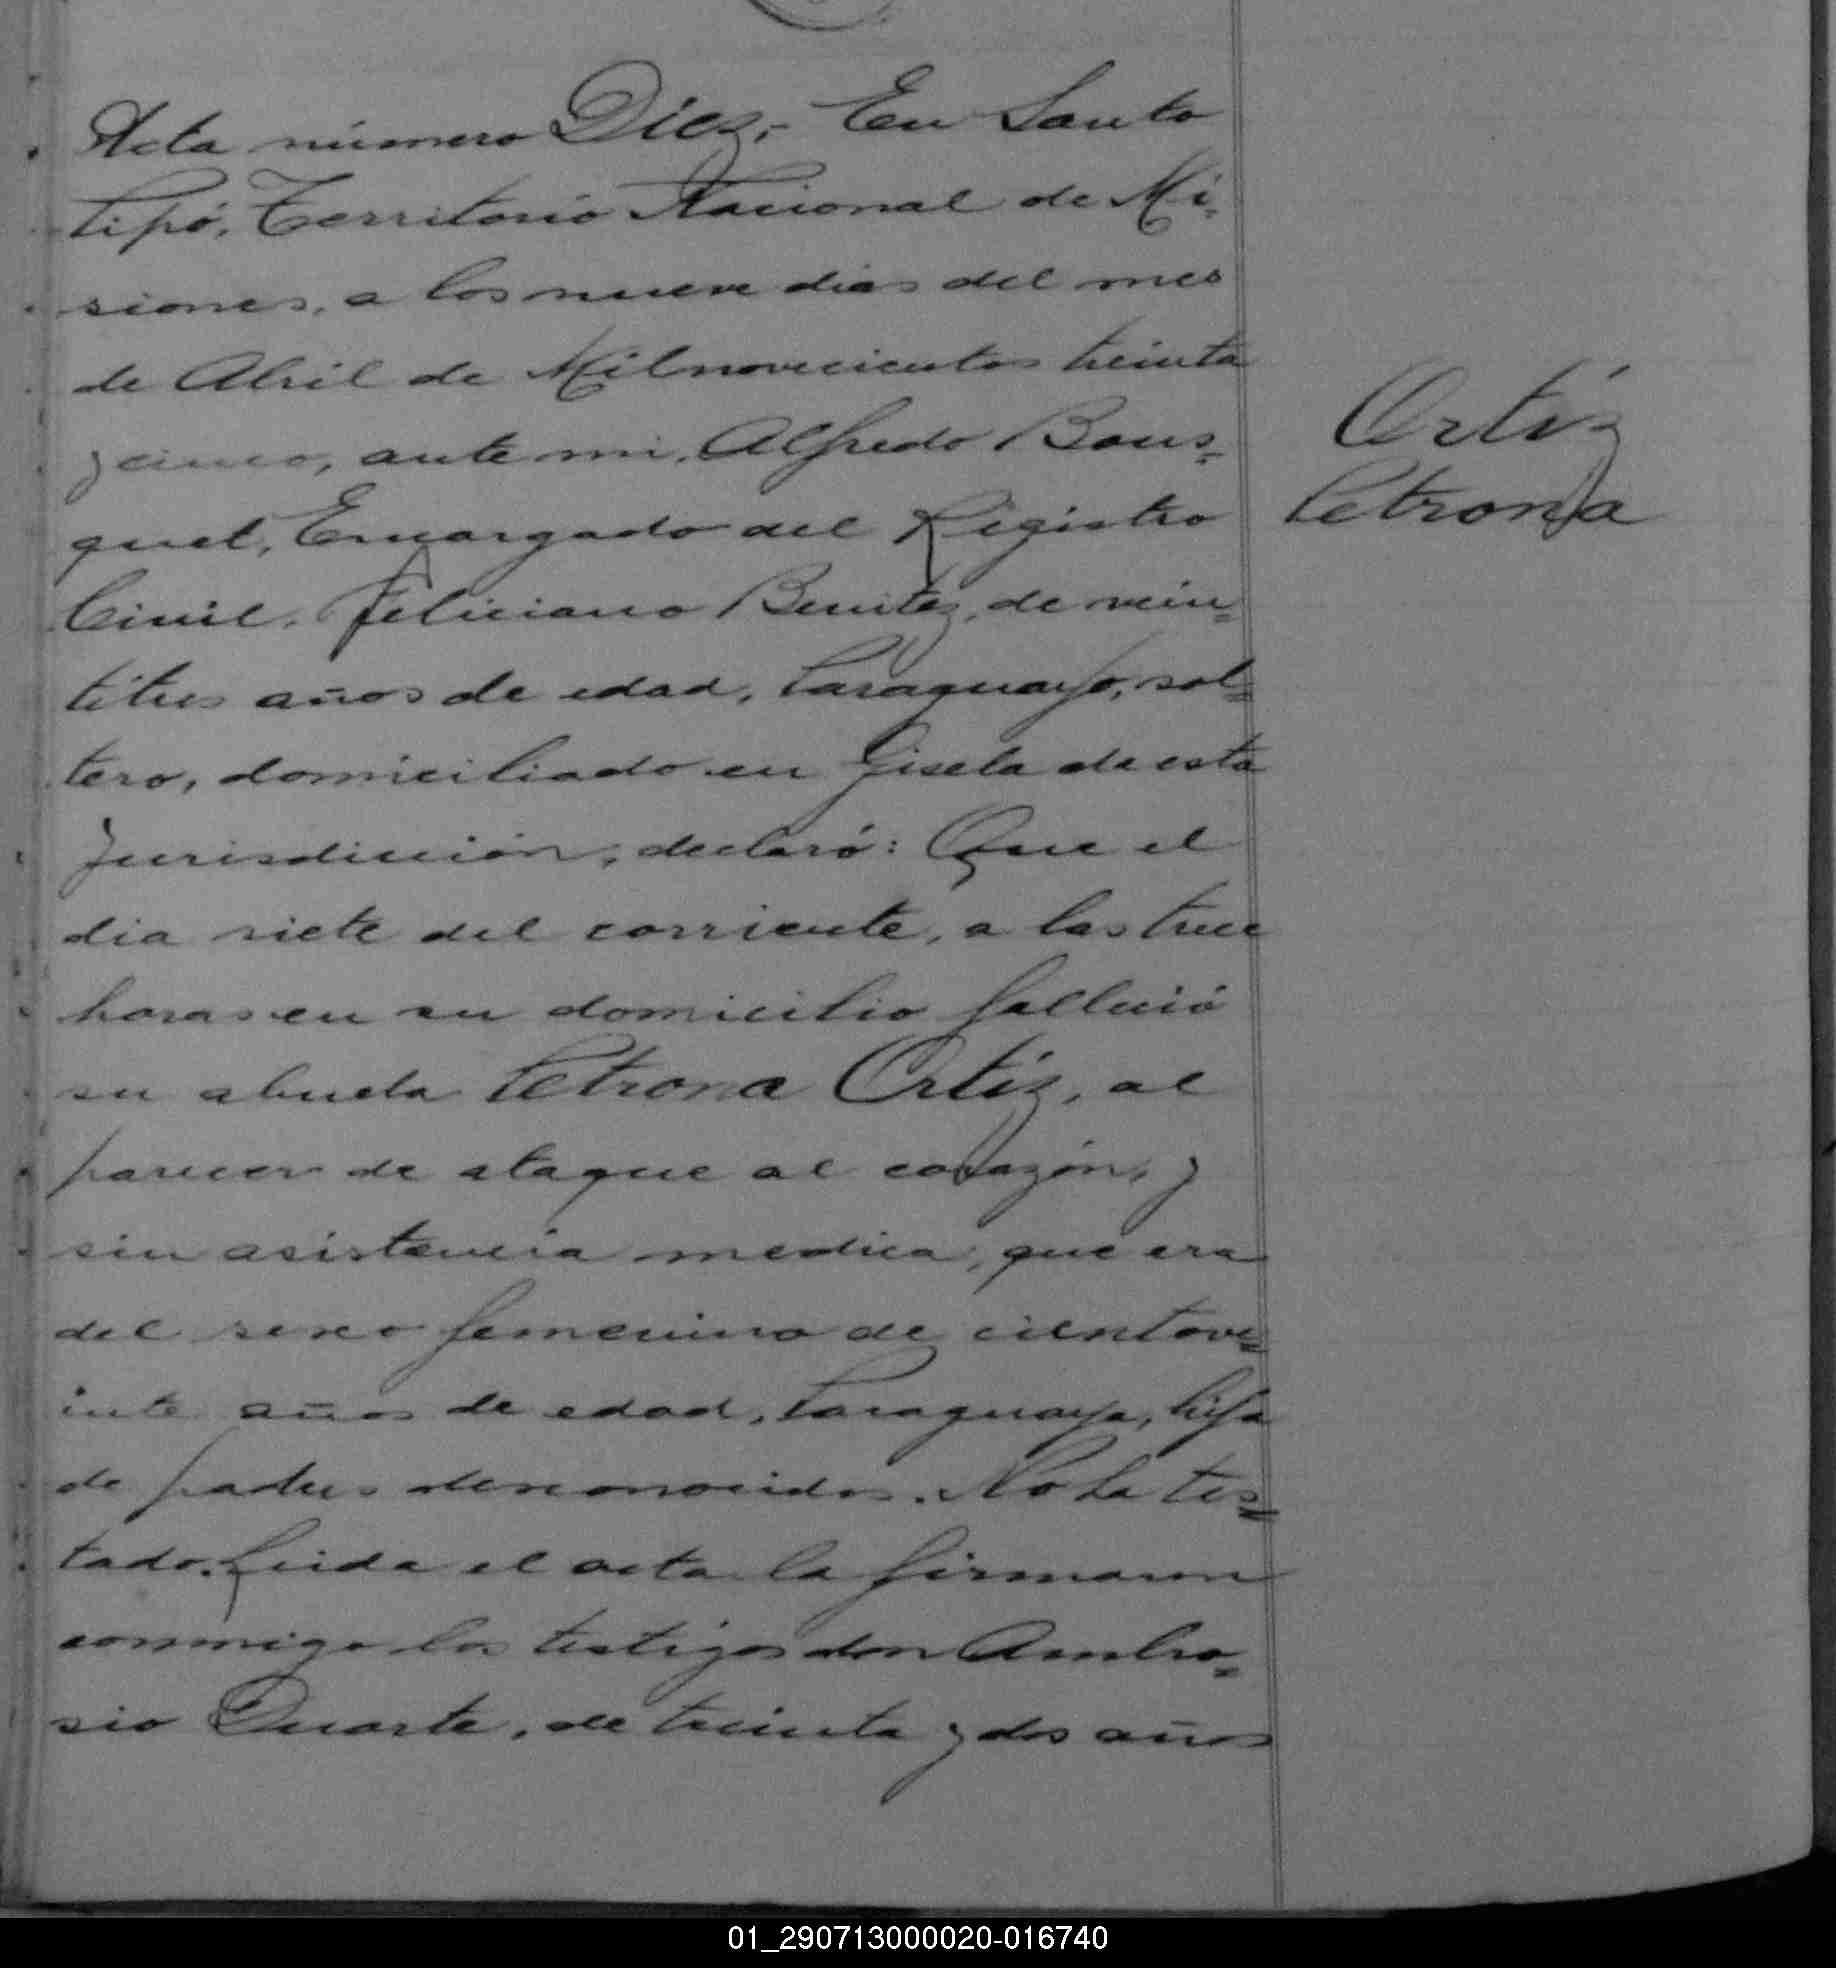 Acta número Diez.- En Santo
Pipó, Territorio Nacional de Mi-
siones, a los nueve dias del mes
de Abril de Mil novecientos treinta
y cinco, ante mi, Alfredo Bous-
quet, Encargado del Registro
Civil, Feliciano Benitez, de vein-
titres años de edad, Paraguayo, sol-
tero, domiciliado en Gisela de esta
Jurisdicción, declaró: Que el
dia siete del corriente, a las trece
horas en su domicilio falleció
su abuela Petrona Ortiz, al
parecer de ataque al corazón, y
sin asistencia medica, que era
del sexo femenino de ciento ve-
inte años de edad, Paraguaya, hija
de padres desconocidos. No ha tes-
tado. Leida el acta la firmaron
conmigo los testigos don Ambro-
sio Duarte, de treinta y dos años
Ortiz
Petrona
01_290713000020-016740